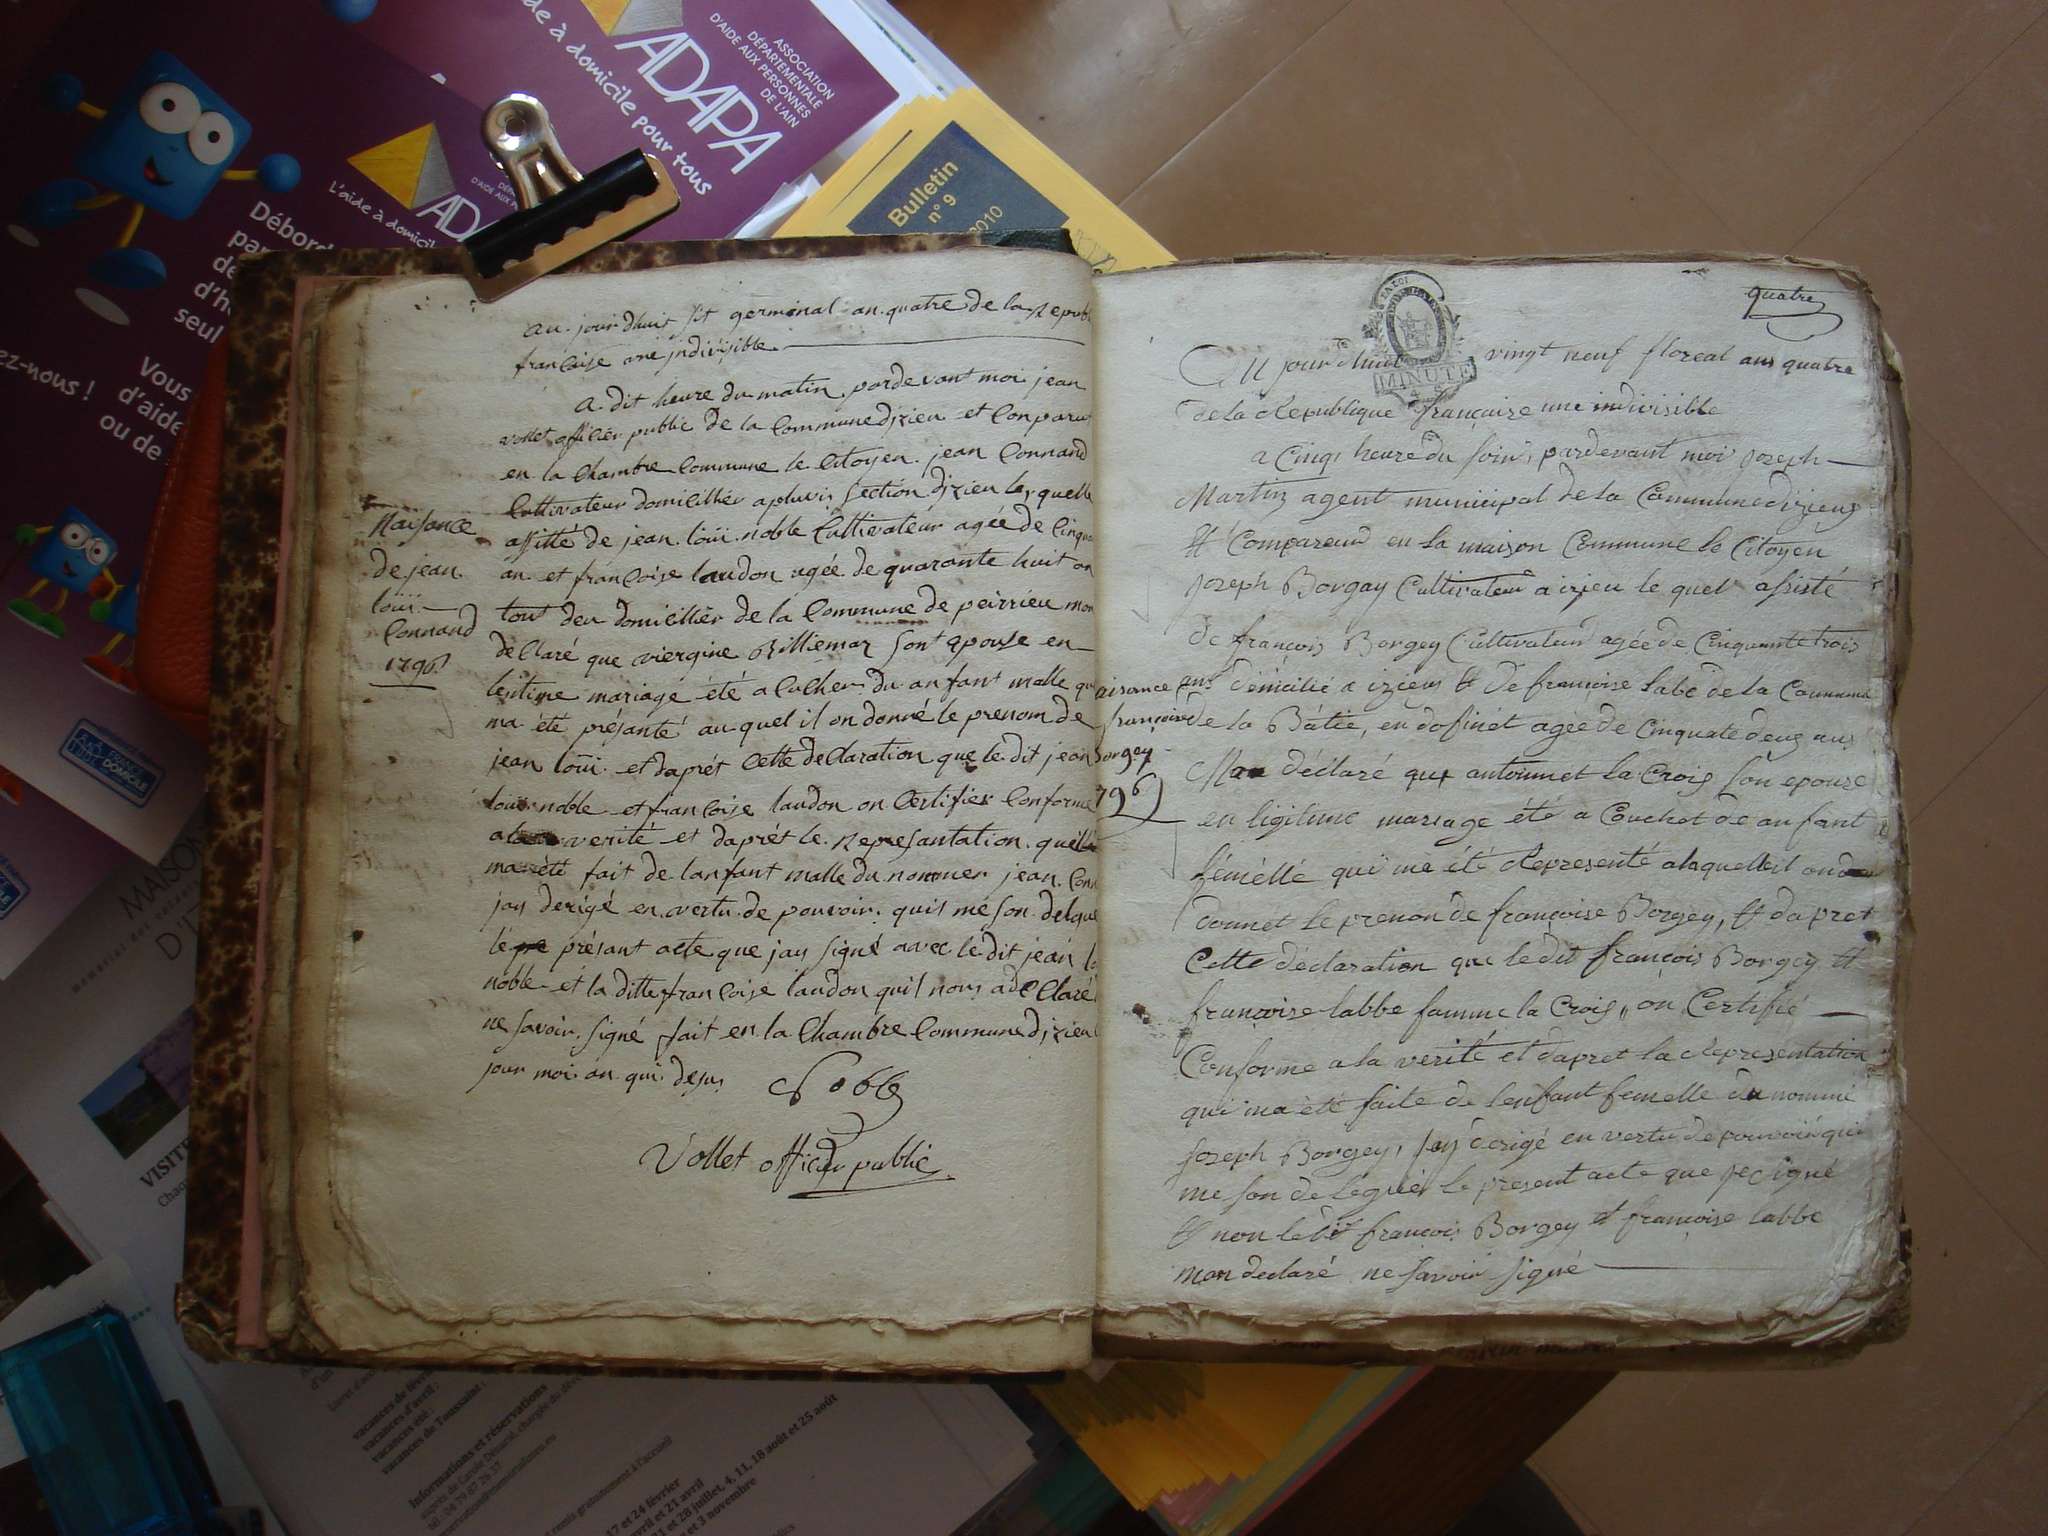 ADAPA
ASSOCIATION
DÉPARTEMENTALE
D'AIDE AUX PERSONNES
DE L'AIN
de à domicile pour tous
L'aide à domicil
Débord
par
de
d'h
seul
Vous
d'aide
ou de
ez-nous !
FRANCE
DOMICILE
Bulletin
n° 9
2010
MAISON
VISITE
au jourdhuit sit germinal an quatre de la Republ
francoise une indivisible
A dit heure du matin pardevant moi jean
vollet officier public de la Commune dizieu et Conparut
en la Chambre Commune le Citoyen jean Connand
Cultivateur domicillier apluvis section dizieu les quelle
assitté de jean loüi noble Cultivateur agée de Cinqua
an et francoise laudon agée de quarante huit an
tout deu domicillier de la Commune de peirrieu mon
declaré que viergine Billiemaz sont epouse en
lesitime mariage été aCulher du anfant malle qui
ma été présanté auquel il on donné le prenom de
jean loüi et daprét Cette declaration que le dit jean
loüi noble et francoise laudon on Certifier Conforme
a la verité et daprét le Represantation quelle
ma été fait de lanfant malle du nommer jean Conn
jay derigé en vertu de pouvoir quis me son delgue
le présant acte que jay signé avec le dit jean lo
noble et la ditte francoise laudon quil nous adeClaré
ne savoir signé fait en la Chambre Commune dizieu
jour moi an qui desus
Noble
Vollet officier public
Naisance
de jean
loüi
Connand
1796
quatre
LA LOI
MINUTE
Au jourdhuit vingt neuf floreal ans quatre
de la Republique françaixe une indivisible
a Cinq heure du soir, pardevant moi joseph
Martin agent municipal de la Commune dizieu
Et Compareud en la maison Commune le Citoyen
joseph Borgay Cultivateur a izieu le quel assisté
de françois Borgey Cultivateur agée de Cinquante trois
ans démicilié a izieu Et De françoise Labe de la Commune
de la Bátie, en dofinét agée de Cinquate deuz ans
Man déclaré que antoinnet la Croiz son epouze
en ligitime mariage été a Couchet de an fant
fémélle qui me été Representé alaquelleil on
donnet le prenon de françoise Borgey, Et da pret
Cette déclaration que le dit françois Borgey Et
françoise labbe famme la Croiz, on Certifié
Conforme a la verité et dapret la Representation
qui ma été faite de lenfant femelle du nommé
joseph Borgey, jay derigé en vertu de pouvoir qui
me son deléguér le present acte que je signé
Et non le dit françois Borgey et françoise labbe
mon declaré ne savoir signé
aisance
françoise
Borgey
796
vacances de févri
vacances d'avril :
vacances été :
vacances de Toussaint
Informations et réservations
17 et 24 février
vril et 21 avril
21 et 28 juillet, 4, 11, 18 août et 25 août
et 3 novembre